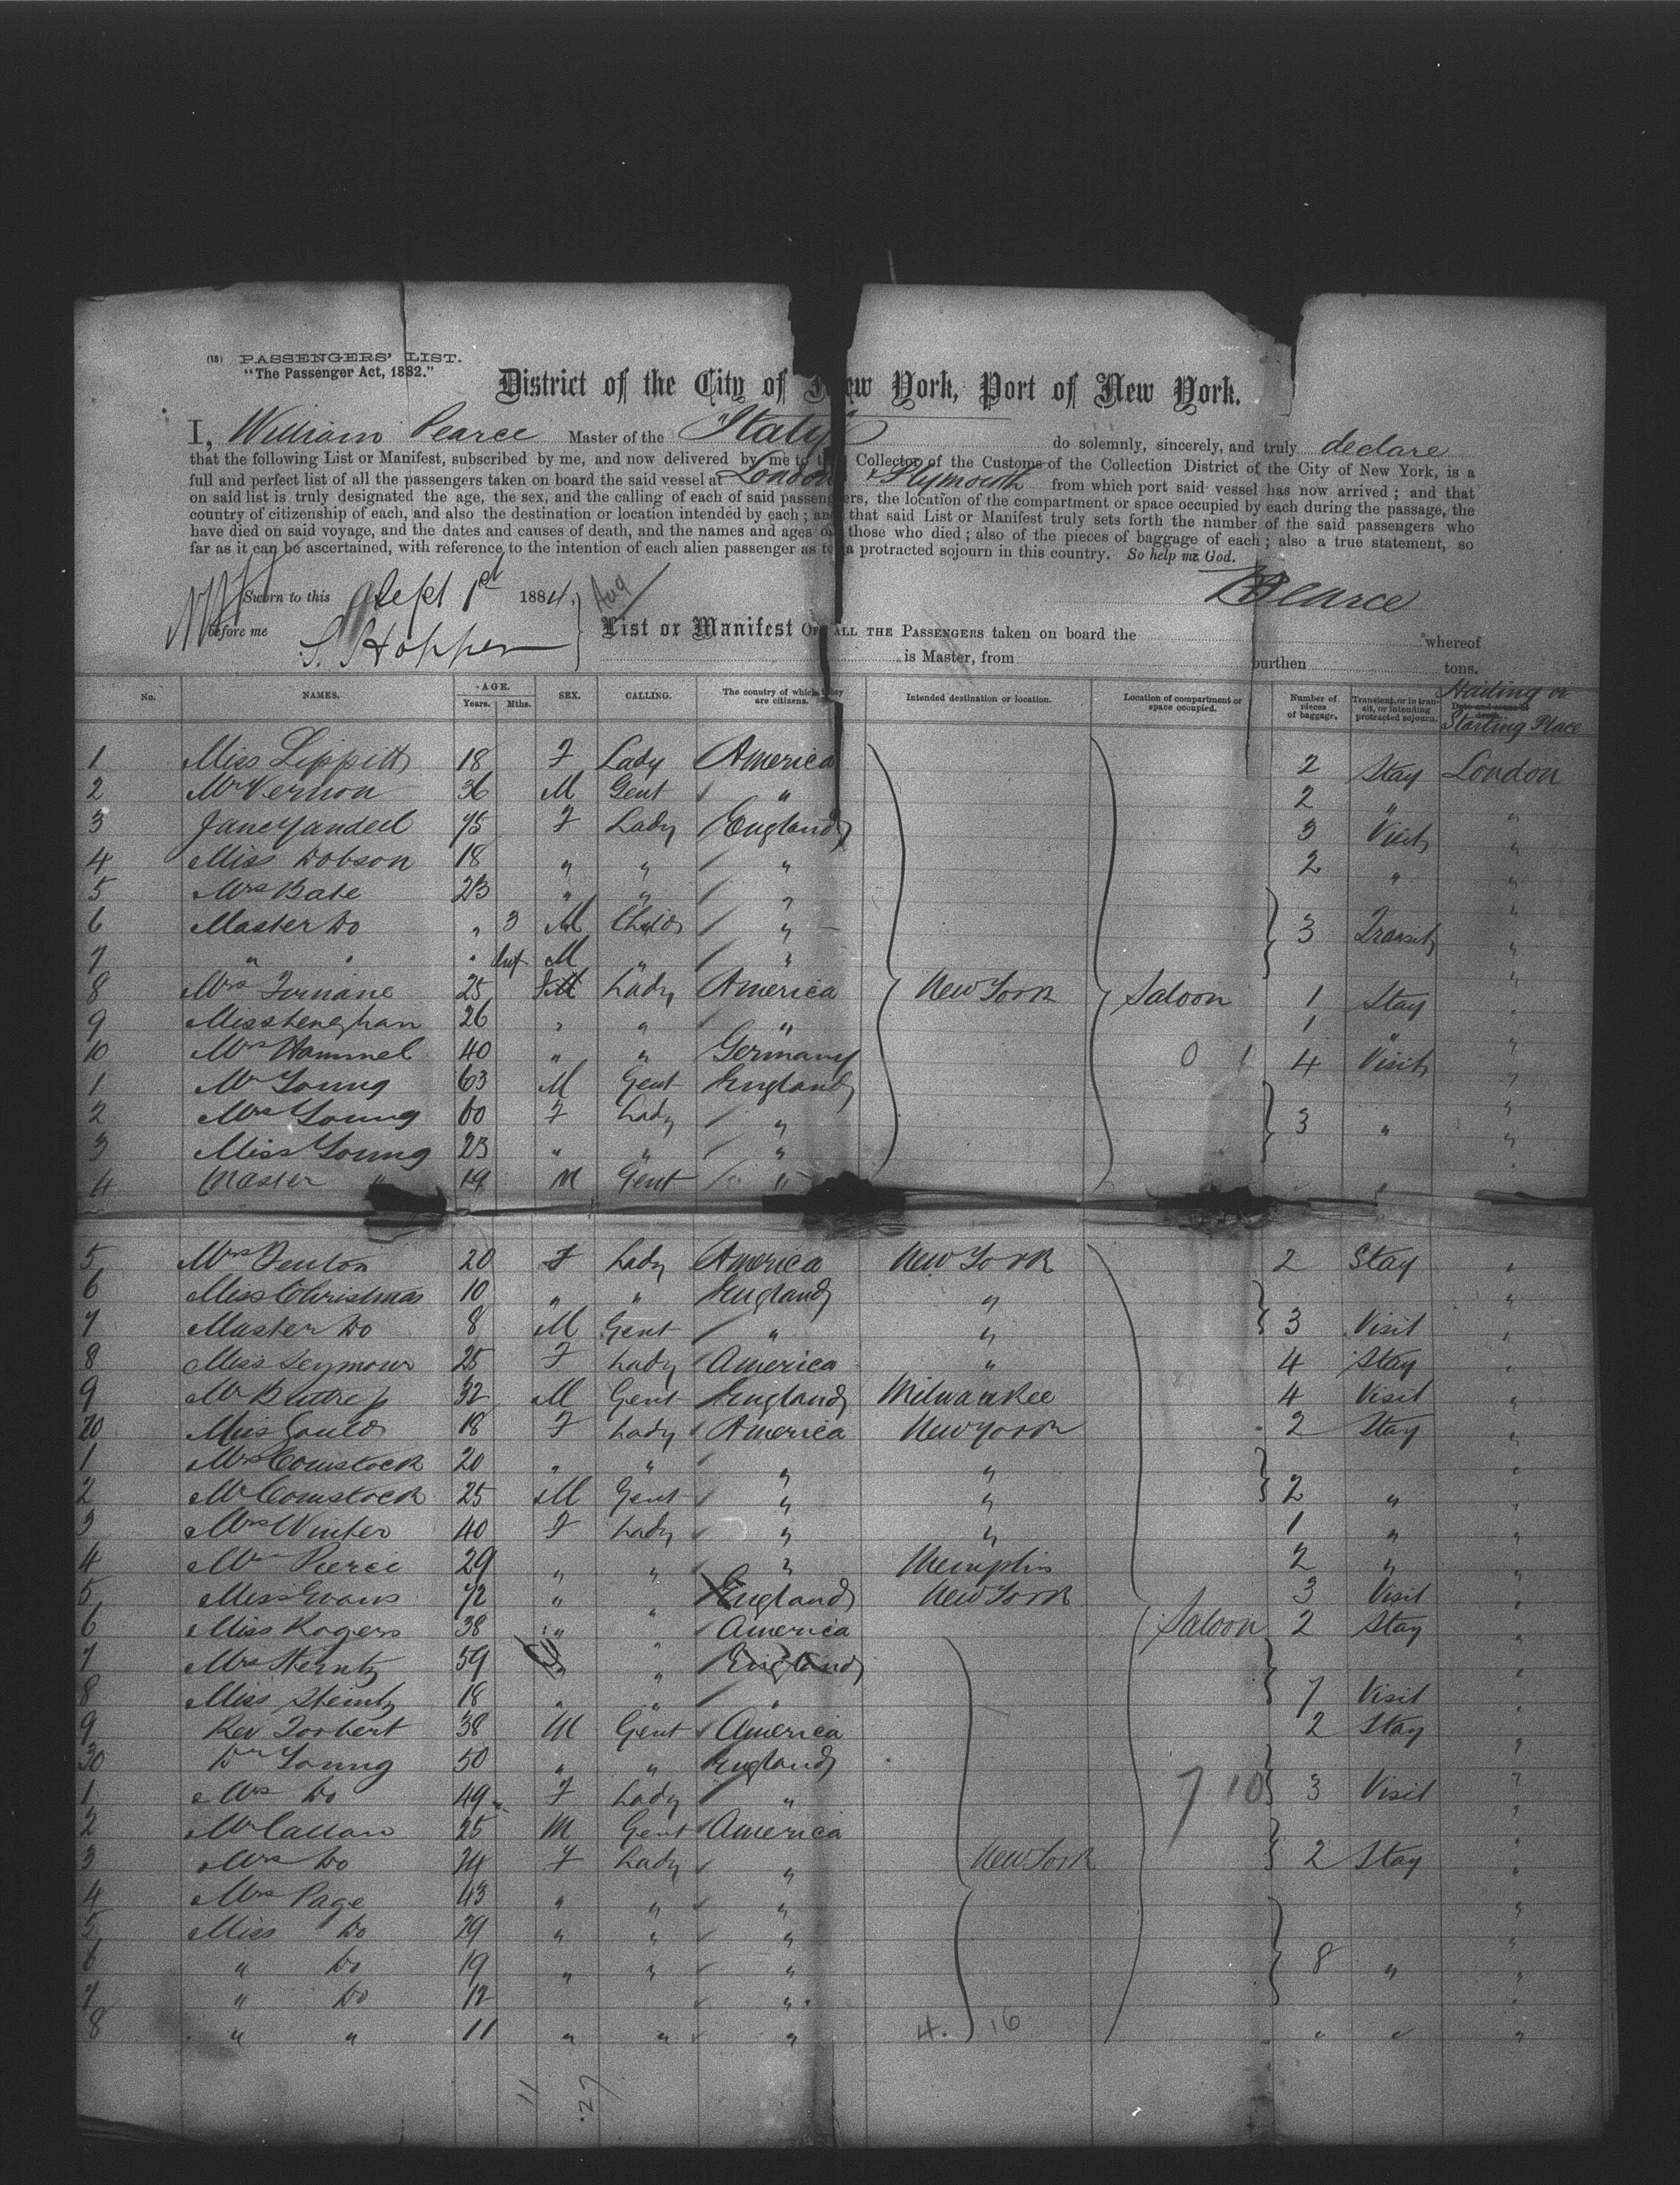 (18) PASSENGERS' LIST.
"The Passenger Act, 1882."
District of the City of New York, Port of New York.
I, William Pearce Master of the "Italy" do solemnly, sincerely, and truly declare
that the following List or Manifest, subscribed by me, and now delivered by me to the Collector of the Customs of the Collection District of the City of New York, is a
full and perfect list of all the passengers taken on board the said vessel at London & Plymouth from which port said vessel has now arrived; and that
on said list is truly designated the age, the sex, and the calling of each of said passengers, the location of the compartment or space occupied by each during the passage, the
country of citizenship of each, and also the destination or location intended by each; and that said List or Manifest truly sets forth the number of the said passengers who
have died on said voyage, and the dates and causes of death, and the names and ages of those who died; also of the pieces of baggage of each; also a true statement, so
far as it can be ascertained, with reference to the intention of each alien passenger as to a protracted sojourn in this country. So help me God.
Sworn to this Sept 1st 1884. Aug Pearce
before me S. Hopper
List or Manifest OF ALL THE PASSENGERS taken on board the whereof
is Master, from burthen tons.
No. NAMES. AGE. Years. Mths. SEX. CALLING. The country of which they are citizens. Intended destination or location. Location of compartment or space occupied. Number of pieces of baggage. Transient, or in transit, or intending protracted sojourn. Date and cause of death. Starting Place
1 Miss Lippitt 18 F Lady America 2 Stay London
2 Mr Vernon 36 M Gent " 2 " "
3 Jane Yandell 75 F Lady England 3 Visit "
4 Miss Dobson 18 " " " 2 " "
5 Mrs Bate 23 " " " "
6 Master Do " 3 M Child " 3 Transit "
7 " " " Inf M " " "
8 Mrs 25 Lady America New York Saloon 1 Stay "
9 Miss Lenghan 26 " " " 1 " "
10 Mrs Hammel 40 " " Germany 0 1 4 Visit "
1 Mr Young 63 M Gent England "
2 Mrs Young 60 F Lady " 3 " "
3 Miss Young 23 " " " "
4 Master " 19 M Gent " "
5 Mrs Fenton 20 F Lady America New York 2 Stay "
6 Miss Christmas 10 " " England " "
7 Master Do 8 M Gent " " 3 Visit "
8 Miss Seymour 25 F Lady America " 4 Stay "
9 Mr 32 M Gent England Milwaukee 4 Visit "
20 Miss Gould 18 F Lady America New York 2 Stay "
1 Mrs Comstock 20 " " " " "
2 Mr Comstock 25 M Gent " " 2 " "
3 Mrs Winter 40 F Lady " " 1 " "
4 Pierce 29 " " " Memphis 2 " "
5 Miss Evans 72 " " England New York 3 Visit "
6 Miss Rogers 38 " America Saloon 2 Stay "
7 Mrs 59 " " England "
8 Miss 18 " " " 7 Visit "
9 Rev Torbert 38 M Gent America 2 Stay "
30 Dr Young 50 " " England "
1 Mrs Do 49 F Lady " 7 10 3 Visit "
2 Mr Callan 25 M Gent America "
3 Mrs Do 24 F Lady " New York 2 Stay "
4 Mrs Page 43 " " " "
5 Miss Do 29 " " " "
6 " Do 19 " " " 8 " "
7 " Do 12 " "
8 " " 11 " " " 4. 16 " " "
11 27